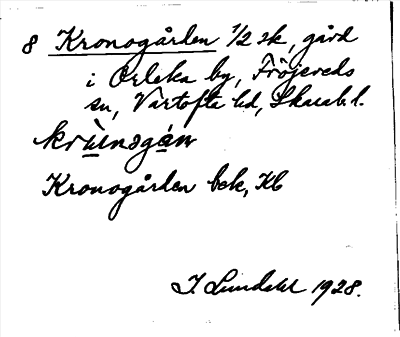 8 Kronogården 1/2 sk, gård
i Orleka by, Fröjereds
sn, Vartofta hd, Skarab. l.
krùnɔgán
Kronogården bek, Kb
I. Lundahl 1928.